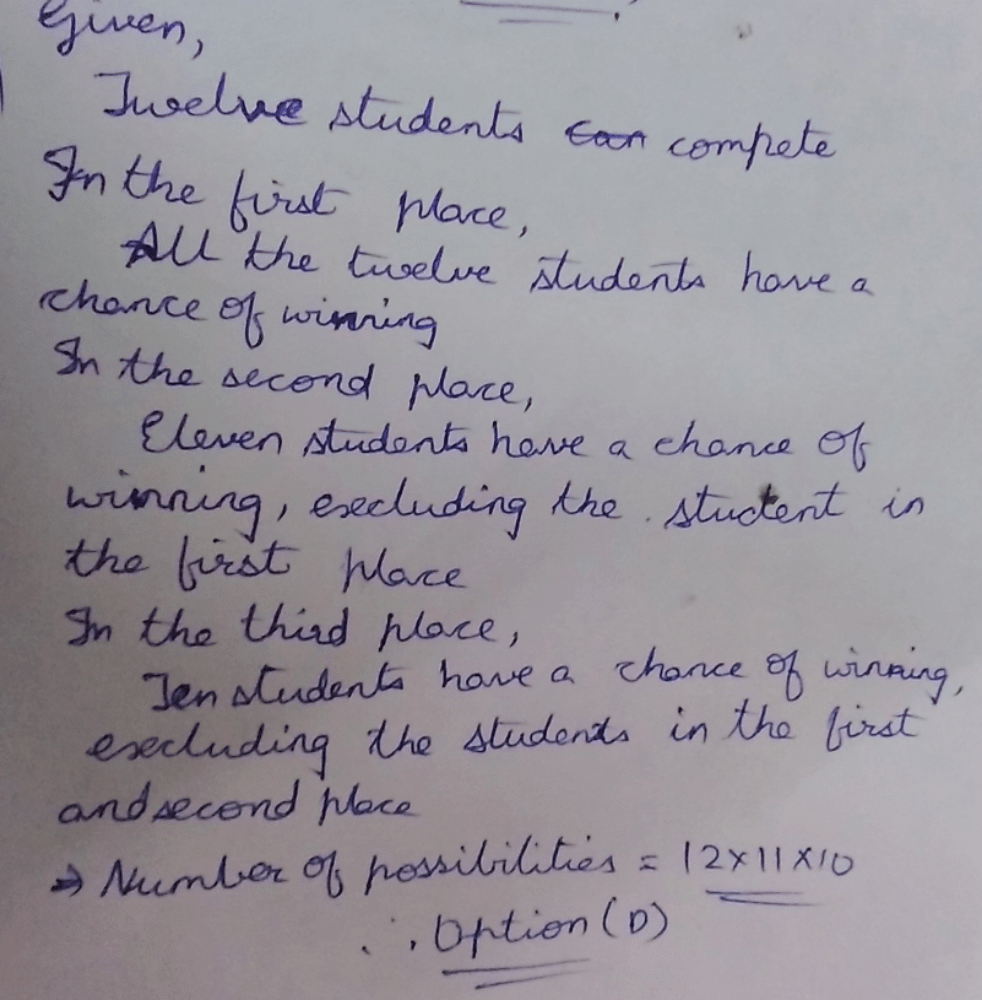 Given,
Twelve students can compete
In the first place,
All the twelve students have a
chance of winning
In the second place,
Eleven students have a chance of
winning, excluding the student in
the first place
In the third place,
Ten students have a chance of winning,
excluding the students in the first
and second place
⇒ Number of possibilities = 12×11×10
∴ Option (D)